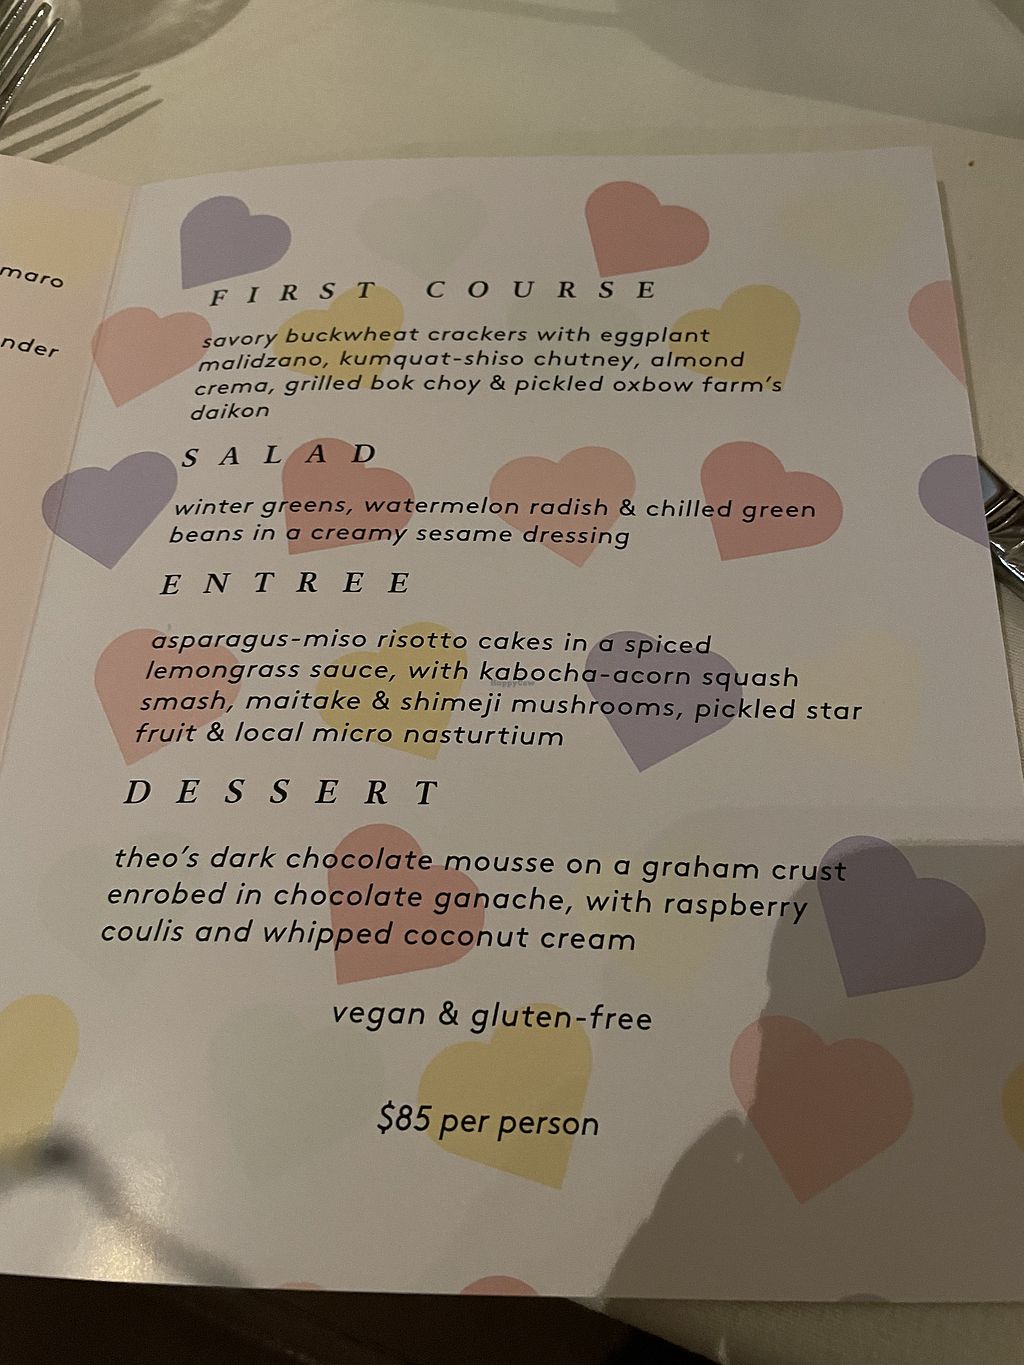 maro
nder
FIRST COURSE
savory buckwheat crackers with eggplant
malidzano, kumquat-shiso chutney, almond
crema, grilled bok choy & pickled oxbow farm's
daikon
SALAD
winter greens, watermelon radish & chilled green
beans in a creamy sesame dressing
ENTREE
asparagus-miso risotto cakes in a spiced
lemongrass sauce, with kabocha-acorn squash
smash, maitake & shimeji mushrooms, pickled star
fruit & local micro nasturtium
DESSERT
theo's dark chocolate mousse on a graham crust
enrobed in chocolate ganache, with raspberry
coulis and whipped coconut cream
vegan & gluten-free
$85 per person
HappyCow